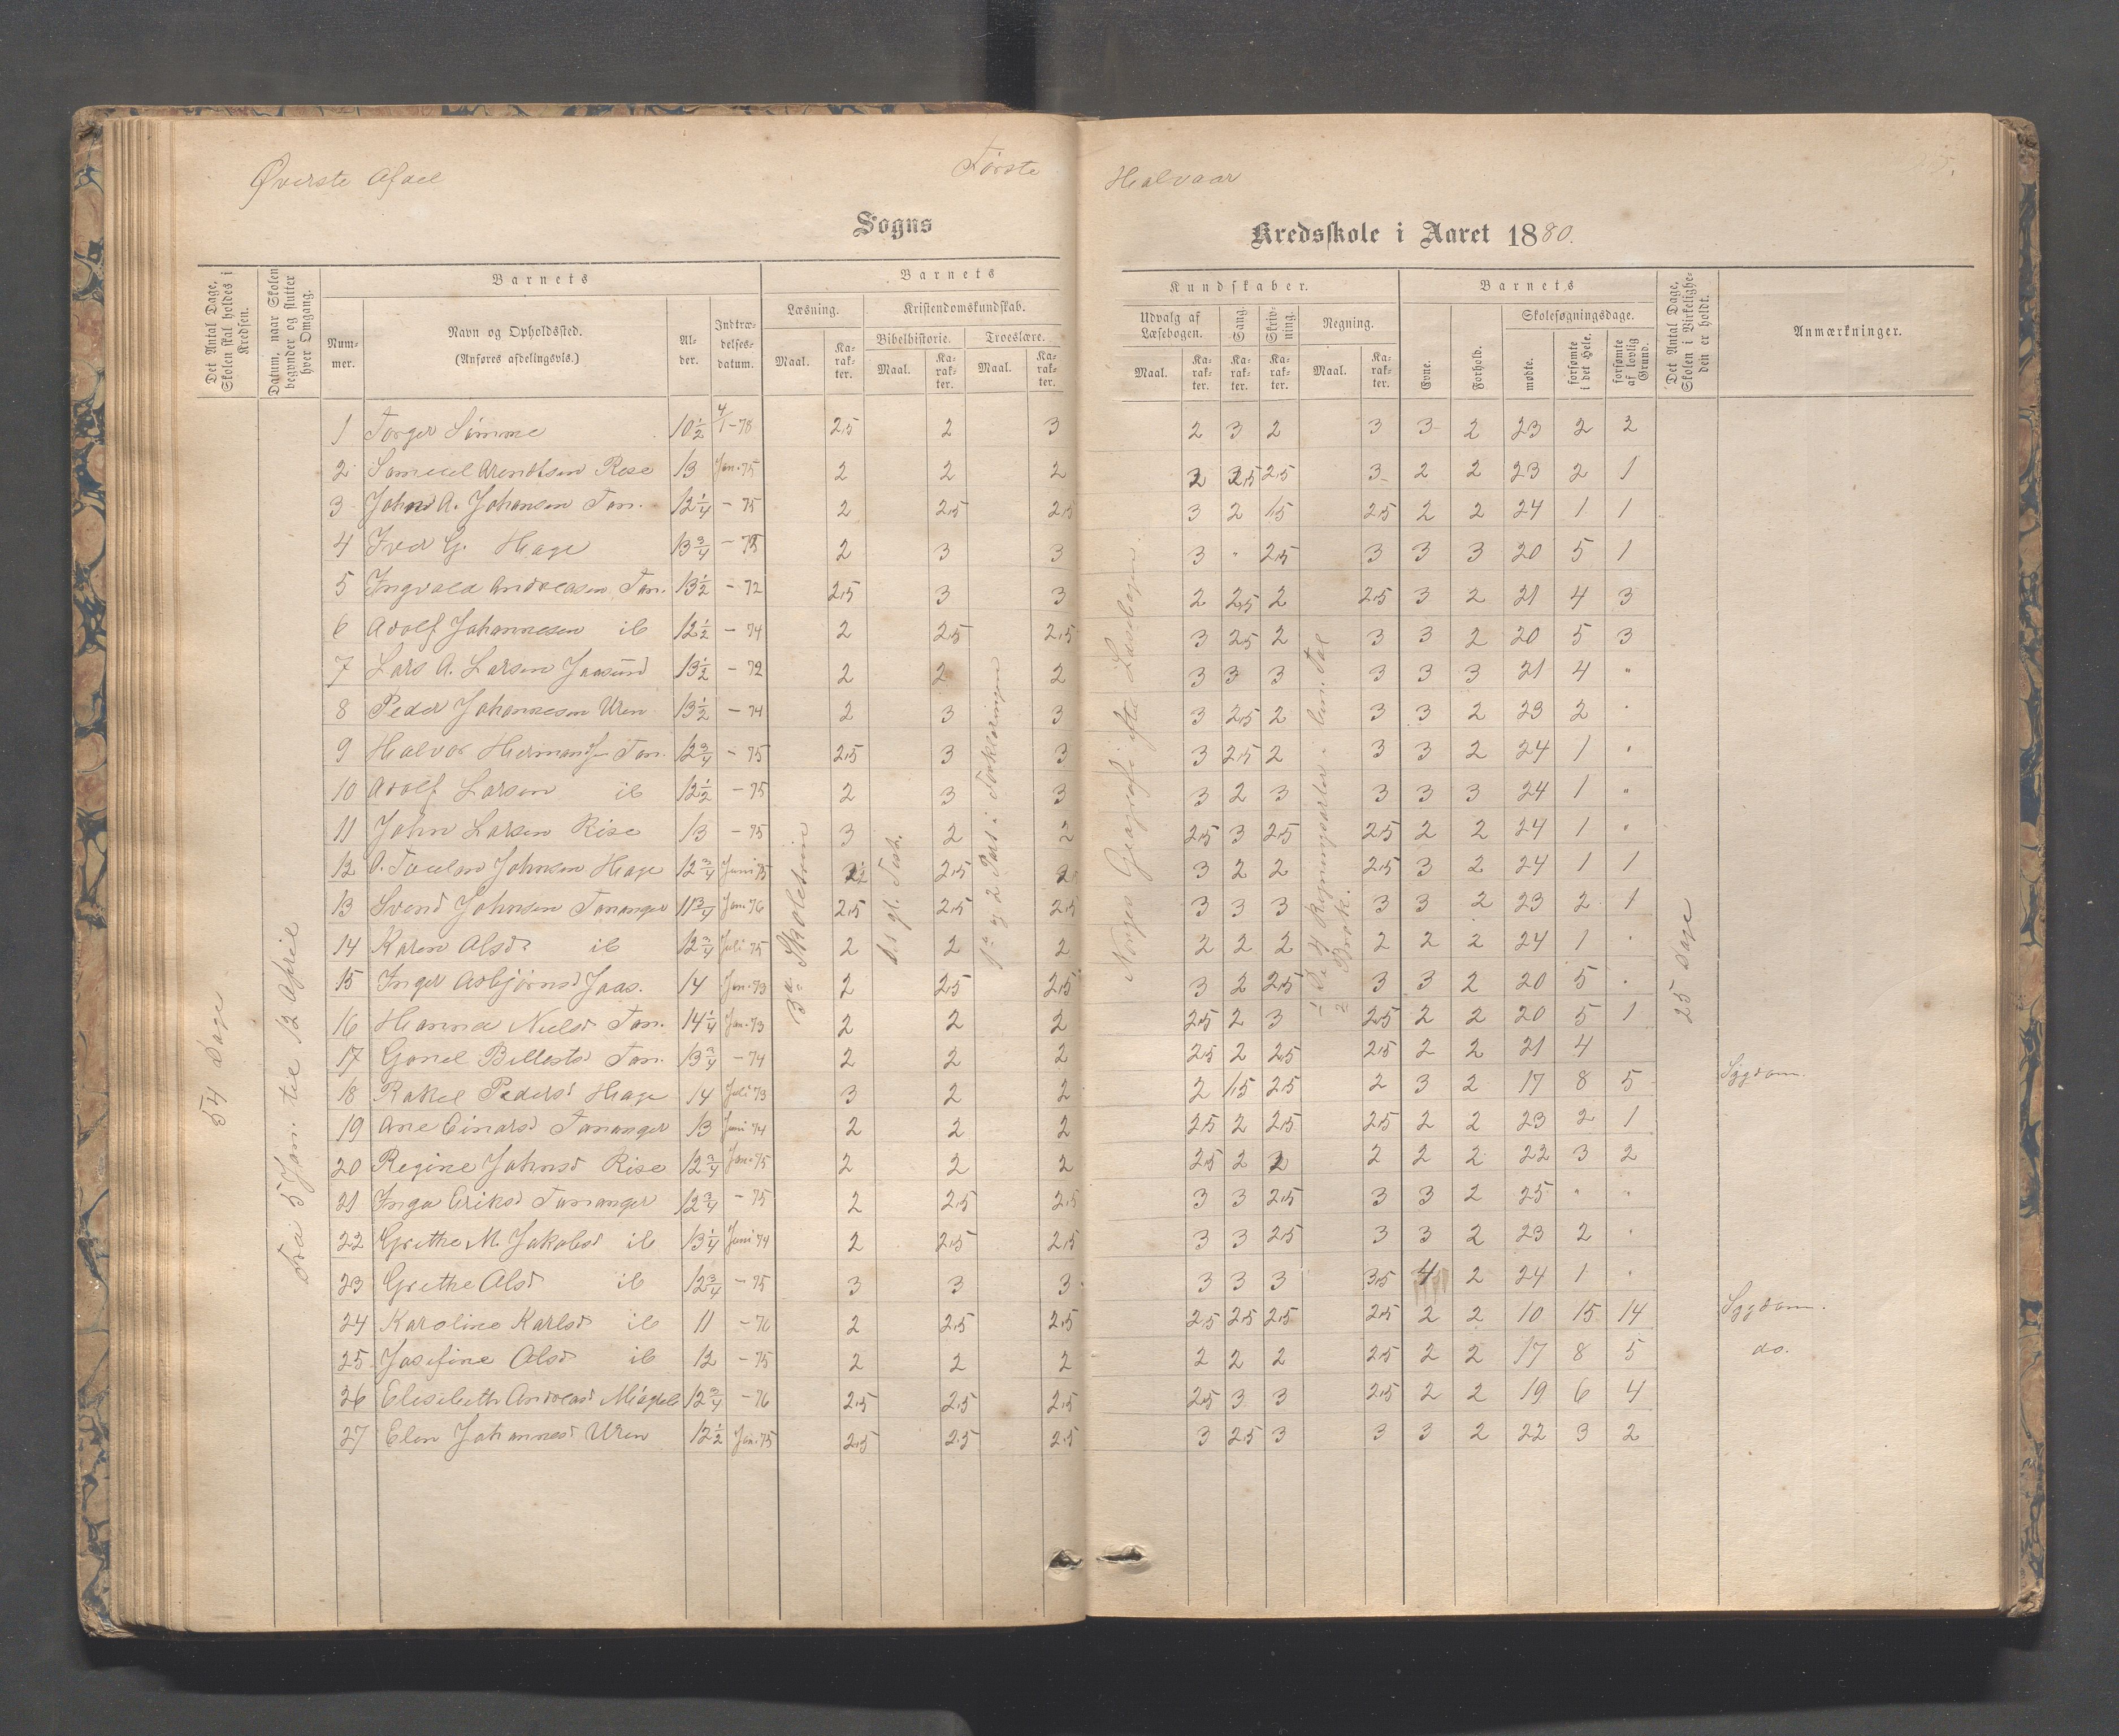 Øverste Afdel Første Halvaar
Sogns Kredsskole i Aaret 1880.
Det Antal Dage, Skolen skal holdes i Kredsen.
Datum, naar Skolen begynder og slutter hver Omgang.
Barnets
Nummer.
Navn og Opholdssted.
(Anføres afdelingsvis.)
Alder.
Indtrædelsesdatum.
Barnets Kundskaber.
Læsning.
Maal. Karakter.
Kristendomskundskab.
Bibelhistorie. Troeslære.
Maal. Karakter. Maal. Karakter.
Udvalg af Læsebogen.
Maal. Karakter.
Sang. Karakter.
Skrivning. Karakter.
Regning.
Maal. Karakter.
Barnets
Evne. Forhold.
Skolesøgningsdage.
mødte. forsømte i det Hele. forsømte af lovlig Grund.
Det Antal Dage, Skolen i Virkeligheden er holdt.
Anmærkninger.
54 Dage
Fra 5 Jan. til 12 April
3die Skoletrin
Det gl. Test.
1ste og 2 Part i Forklaringen
Norges Geografi efter Læsebogen.
De 4 Regningsarter i ben. Tal
Brøk.
25 Dage
1 Torger Simme 10½ 4/1-78 2,5 2 3 2 3 2 3 3 2 23 2 2
2 Samuel Arendtsen Rise 13 Jan. 75 2 2 2 2 2,5 2,5 3 2 2 23 2 1
3 Johan A. Johansen Tan. 12¼ - 75 2 2,5 2,5 3 2 1,5 2,5 2 2 24 1 1
4 Iver G. Hage 13¾ - 73 2 3 3 3 " 2,5 3 3 3 20 5 1
5 Ingvald Andreasen Tan. 13½ - 72 2,5 3 3 2 2,5 2 2,5 3 2 21 4 3
6 Adolf Johannesen ib 12½ - 74 2 2,5 2,5 3 2,5 2 3 3 2 20 5 3
7 Lars A. Larsen Jaasund 13½ - 72 2 2 2 3 3 3 3 3 3 21 4 "
8 Peder Johannesen Uren 13½ - 74 2 3 3 3 2,5 2 3 3 2 23 2 "
9 Halvor Hermandsen Tan. 12¾ - 75 2,5 3 3 3 2,5 2 3 3 2 24 1 "
10 Adolf Larsen ib 12½ - 75 2 3 3 3 2 3 3 3 3 24 1 "
11 John Larsen Rise 13 - 75 3 2 2 2,5 3 2,5 2,5 2 2 24 1 "
12 O. Johnsen Hage 12¾ Juni 75 2,5 3 2 2 2,5 3 2 24 1 1
13 Svend Johnsen Tananger 11¾ Jan. 76 2,5 2,5 2,5 3 3 3 3 3 2 23 2 1
14 Karen Olsd. ib 12¾ Juli 75 2 2 2 2 2 2 2 2 2 24 1 "
15 Inger Asbjørnsd Jaas. 14 Jan. 73 2 2,5 2,5 3 2 2,5 3 3 2 20 5 "
16 Hanna Nielsd Tan. 14¼ Jan. 73 2 2 2 2,5 2 3 2,5 2 2 20 5 1
17 Gonel Tan. 13¾ - 74 2 2 2 2,5 2 2,5 2,5 2 2 21 4
18 Rakel Pedersd Hage 14 Juli 73 3 2 2 2 1,5 2,5 2 3 2 17 8 5 Sygdom.
19 Ane Einarsd Tananger 13 Juni 74 2 2 2 2,5 2 2,5 2,5 2 2 23 2 1
20 Regine Johnsd Rise 12¾ Jan. 75 2 2 2 2,5 2 2 2 2 2 22 3 2
21 Inga Eriksd Tananger 12¾ - 75 2 2,5 2,5 3 3 2,5 3 3 2 25 " "
22 Grethe M. Jakobsd ib 13¼ Juni 74 2 2,5 2,5 3 3 2,5 3 3 2 23 2 "
23 Grethe Olsd ib 12¾ - 75 3 3 3 3 3 3 3,5 4 2 24 1 "
24 Karoline Karlsd ib 11 - 76 2 2,5 2,5 2,5 2,5 2,5 2,5 2 2 10 15 14 Sygdom.
25 Josefine Olsd ib 12 - 75 2 2 2 2 2 2 2,5 2 2 17 8 5 do.
26 Elisabeth Andreasd 12¾ - 76 2,5 2,5 2,5 2,5 3 3 2,5 2 2 19 6 4
27 Elen Johannesd Uren 12½ Jan. 75 2,5 2,5 2,5 3 2,5 3 3 3 2 22 3 2